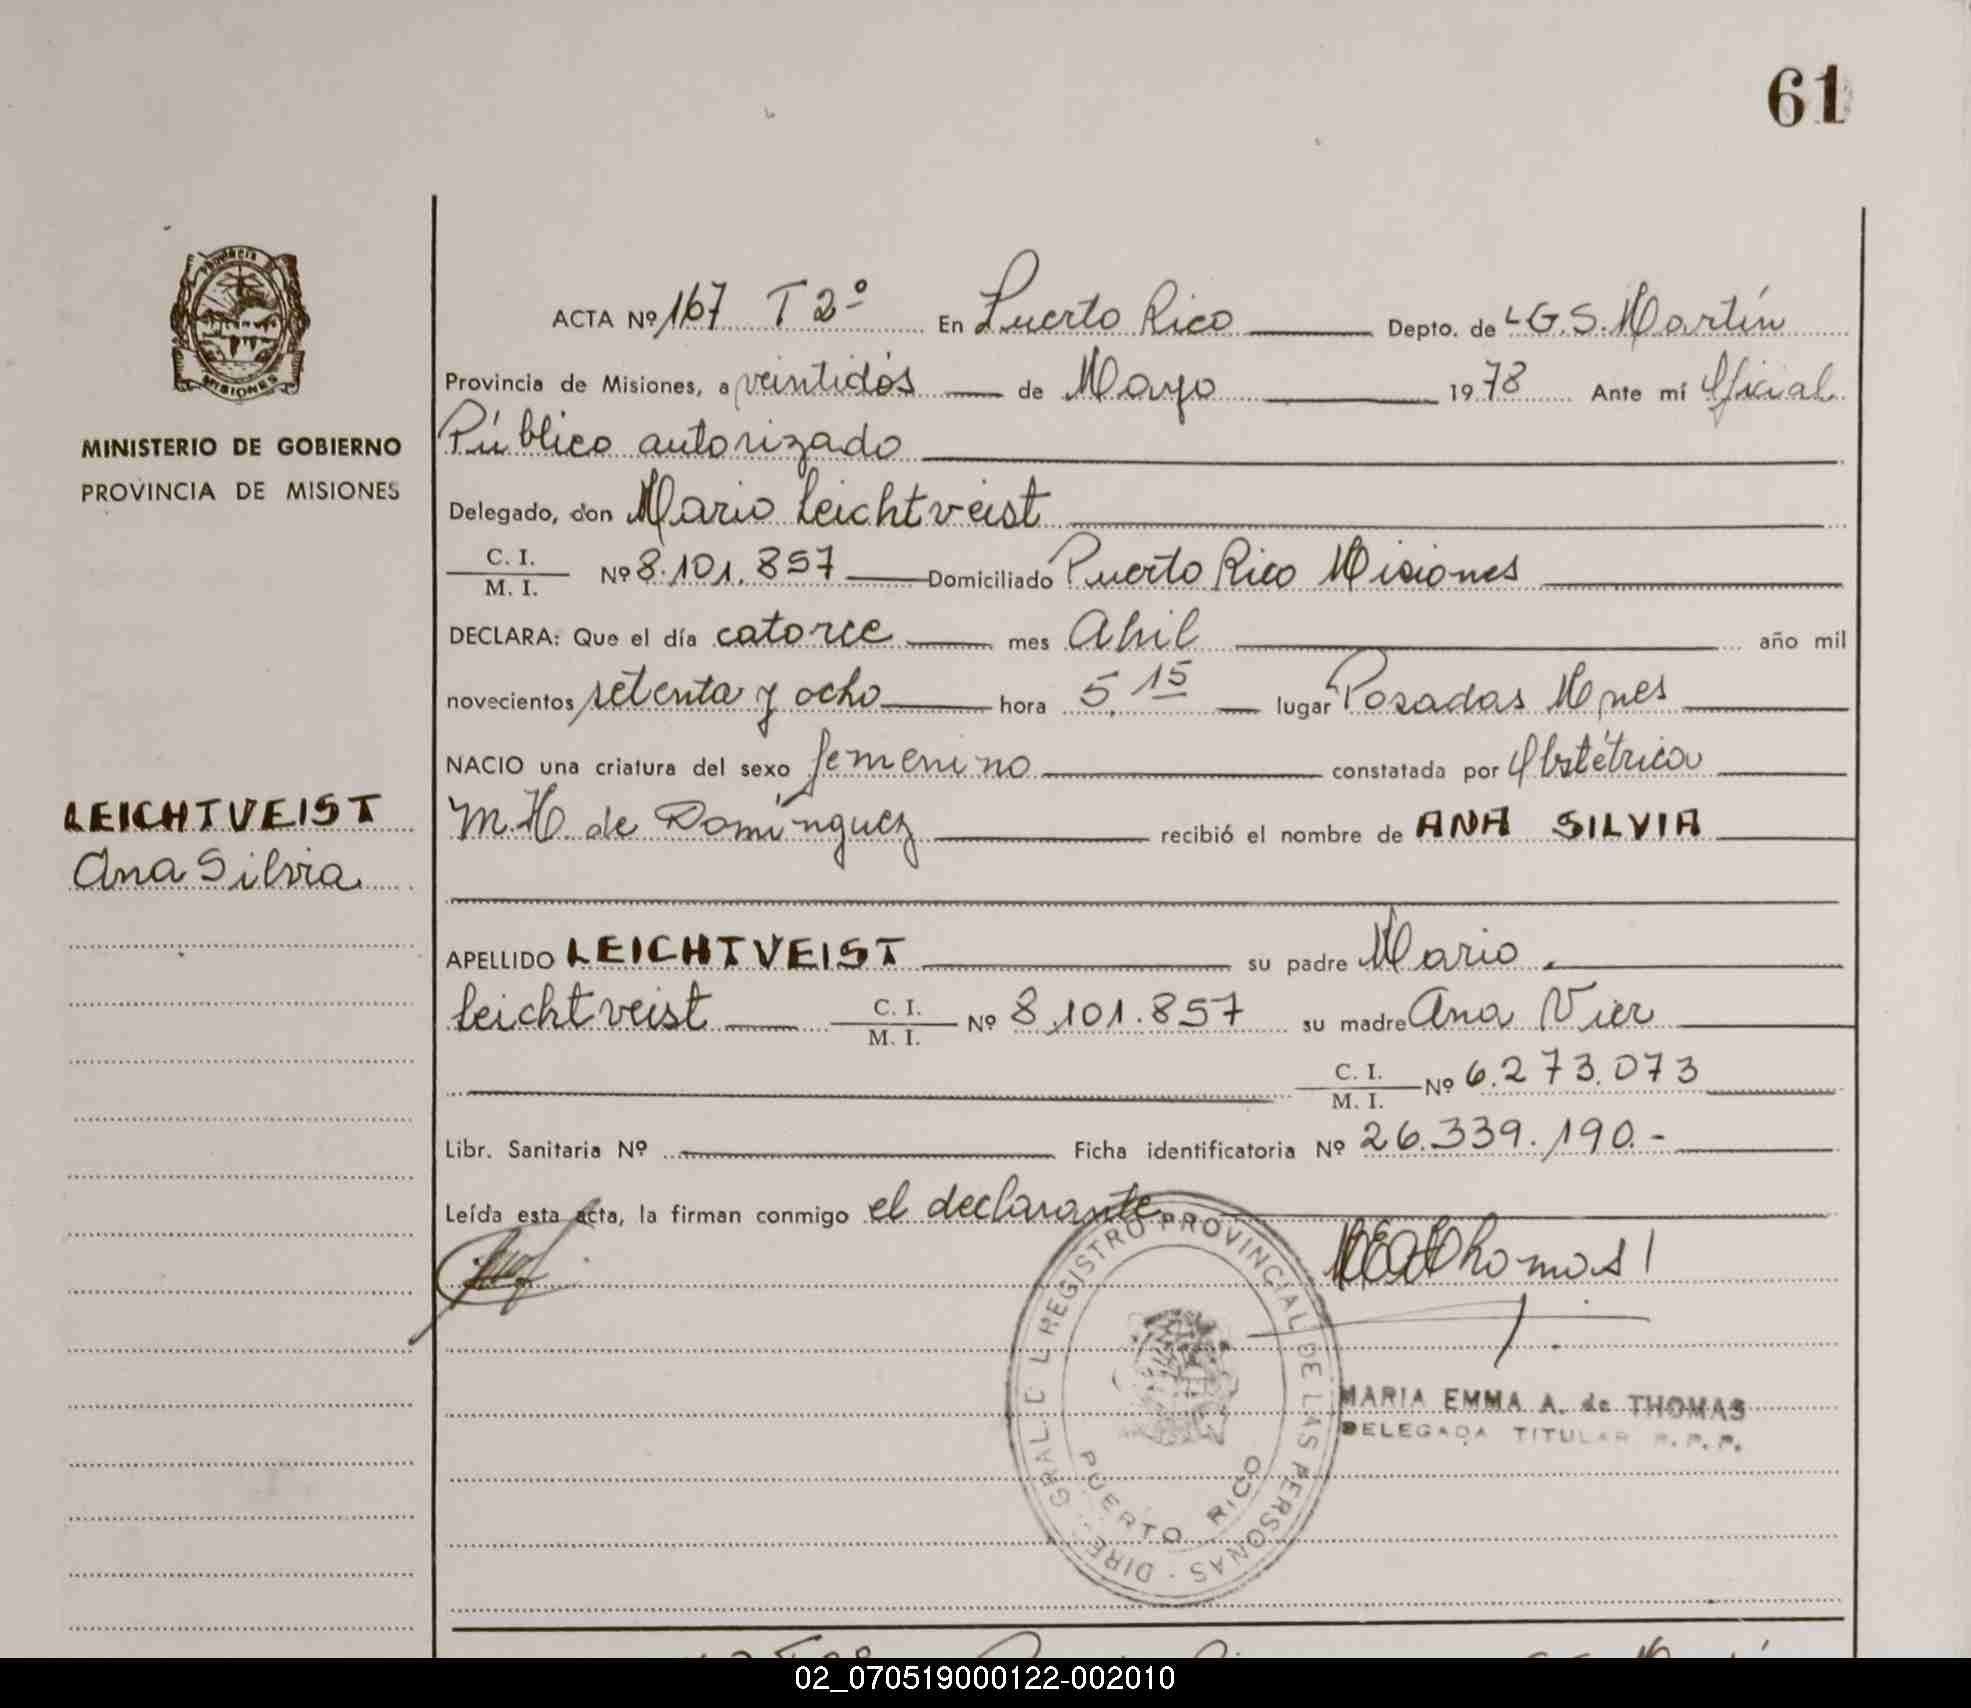 61
PROVINCIA DE
MISIONES
MINISTERIO DE GOBIERNO
PROVINCIA DE MISIONES
LEICHTVEIST
Ana Silvia
ACTA Nº 167 T 2º En Puerto Rico Depto. de L G. S. Martín
Provincia de Misiones, a veintidós de Mayo 1978 Ante mí Oficial
Público autorizado
Delegado, don Mario Leichtveist
C. I.
M. I. Nº 8.101.857 Domiciliado Puerto Rico Misiones
DECLARA: Que el día catorce mes Abril año mil
novecientos setenta y ocho hora 5,15 lugar Posadas Mnes
NACIO una criatura del sexo femenino constatada por Obstétrica
M. H. de Domínguez recibió el nombre de ANA SILVIA
APELLIDO LEICHTVEIST su padre Mario
Leichtveist C. I. M. I. Nº 8.101.857 su madre Ana Vier
C. I.
M. I. Nº 6.273.073
Libr. Sanitaria Nº Ficha identificatoria Nº 26.339.190.-
Leída esta acta, la firman conmigo el declarante
Thomas
MARIA EMMA A. de THOMAS
DELEGADA TITULAR R. P. P.
DIRE. GRAL. DEL REGISTRO PROVINCIAL DE LAS PERSONAS
PUERTO RICO
02_070519000122-002010